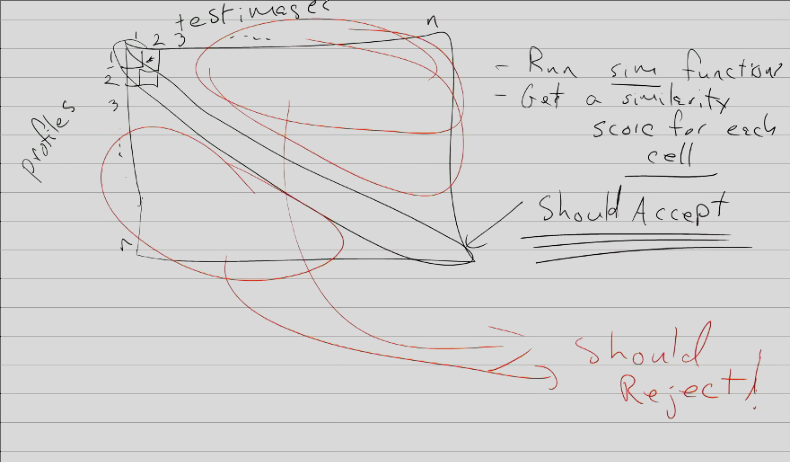 testimages
1 2 3 ..... n
1
2
3
:
n
profiles
- Run sim function
- Get a similarity
score for each
cell
Should Accept
Should
Reject!